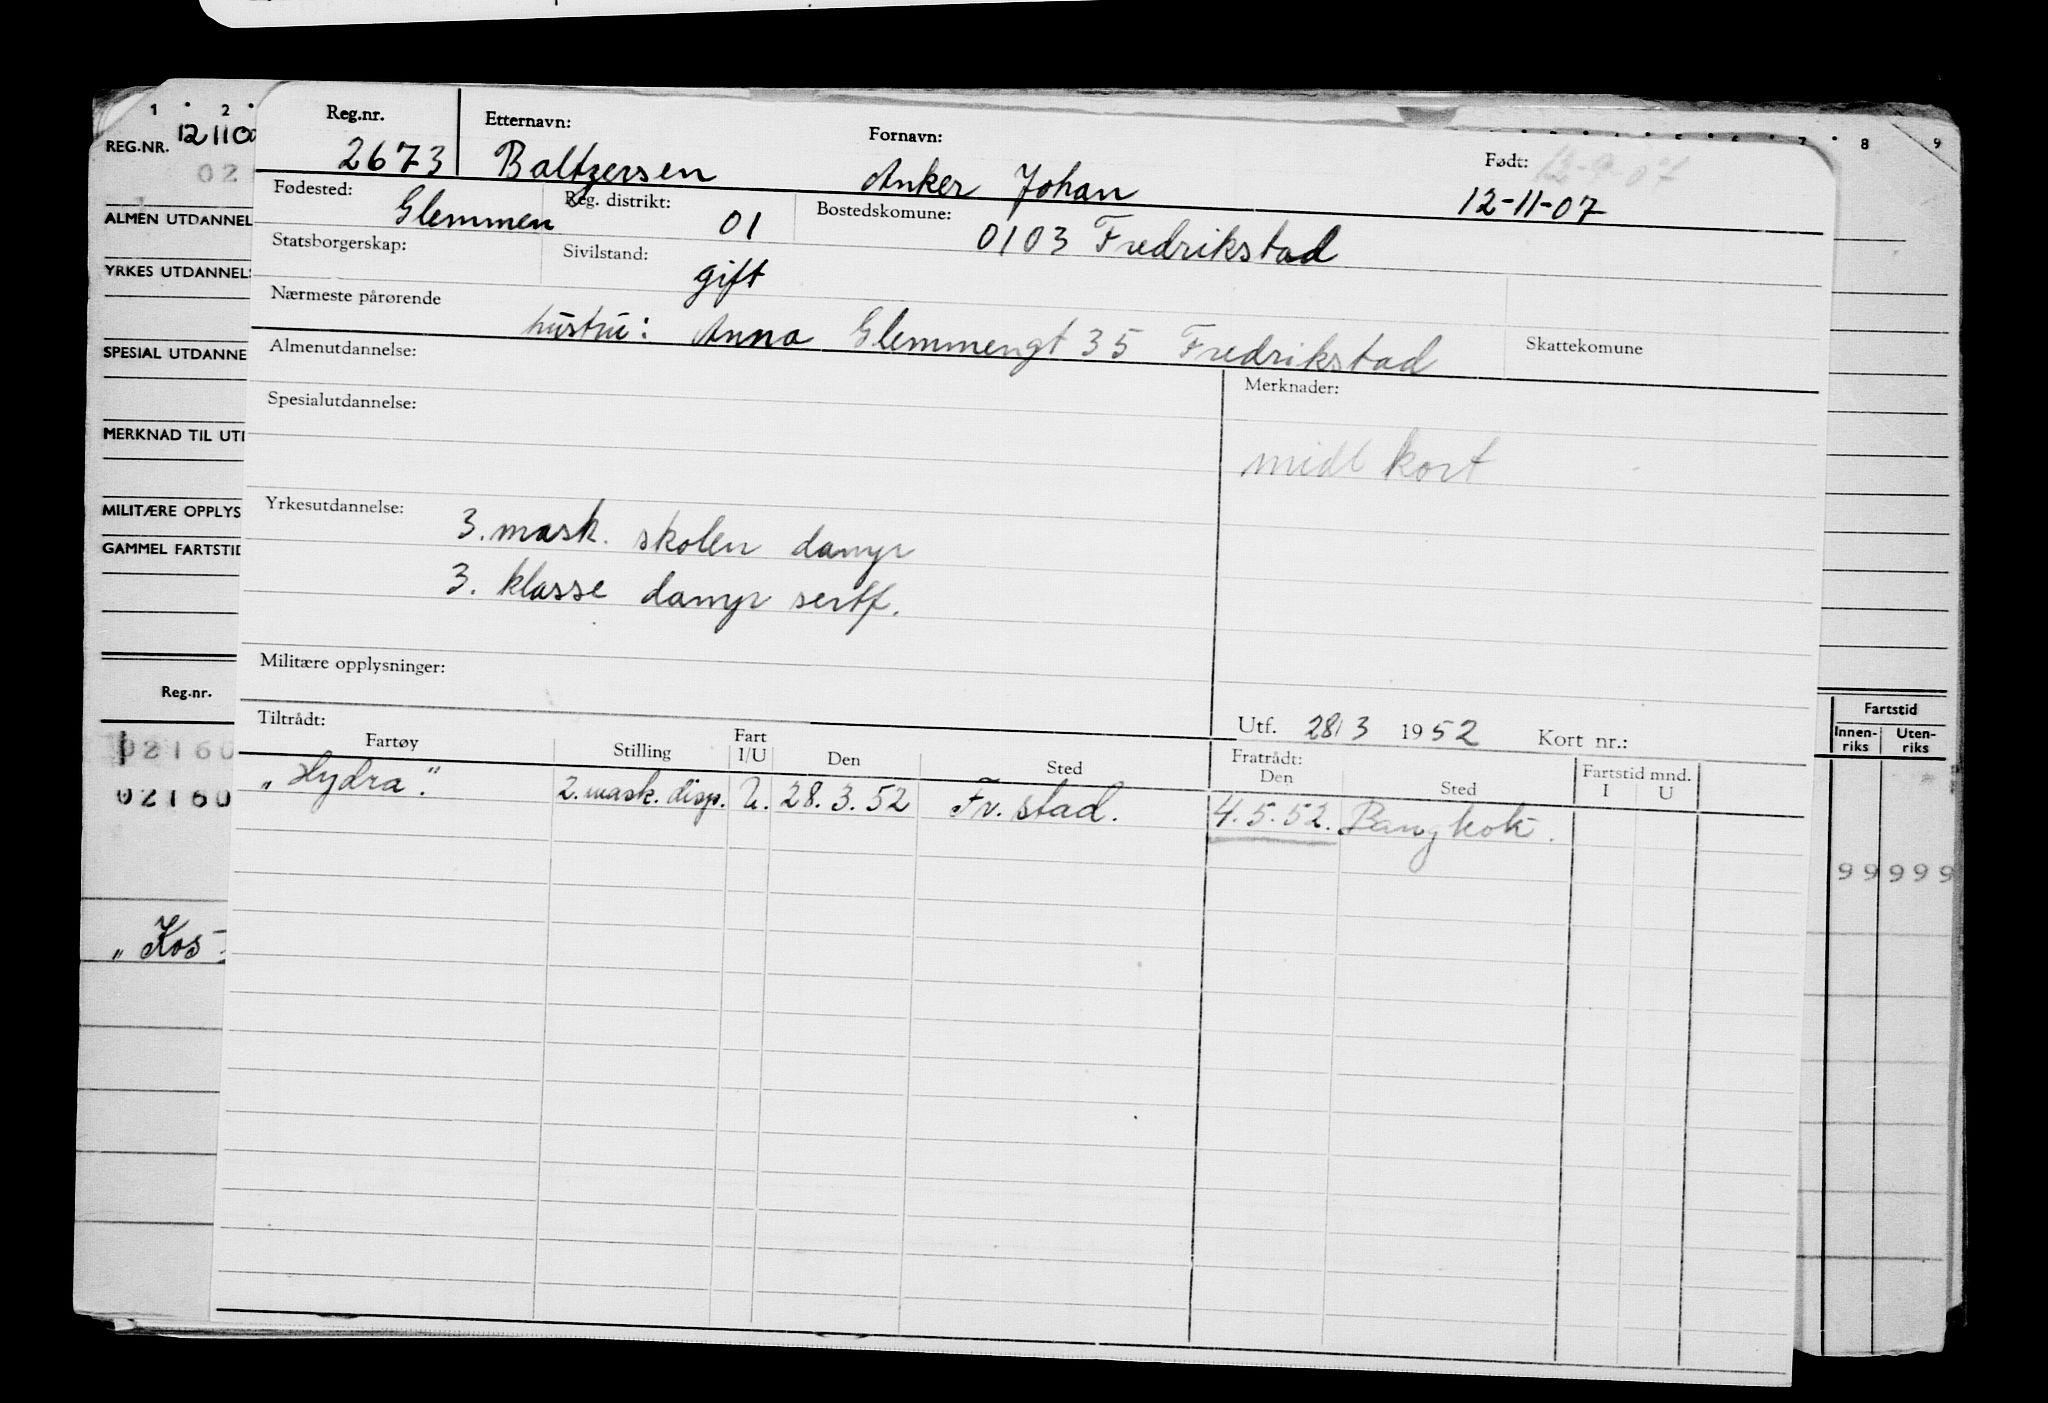 1 2 7 8 9
REG.NR. 12110
02
ALMEN UTDANNEL
YRKES UTDANNELS
SPESIAL UTDANNE
MERKNAD TIL UT
MILITÆRE OPPLYS
GAMMEL FARTSTID
Reg.nr.
02160
02160
„Kos
Reg.nr. Etternavn: Fornavn: Født: 12-9-07
2673 Baltzersen Anker Johan 12-11-07
Fødested: Glemmen Reg. distrikt: 01 Bostedskomune: 0103 Fredrikstad
Statsborgerskap: Sivilstand: gift
Nærmeste pårørende hustru: Anna Glemmengt 35 Fredrikstad Skattekomune
Almenutdannelse: Merknader:
Spesialutdannelse: midl kort
Yrkesutdannelse: 3. mask. skolen damp
3. klasse damp sertf.
Militære opplysninger:
Tiltrådt: Utf. 28/3 1952 Kort nr.:
Fartøy Stilling Fart I/U Den Sted Fratrådt: Den Sted Fartstid mnd. I U
„Hydra". 2. mask. disp. U. 28.3.52 Fr. stad. 4.5.52. Bangkok.
Fartstid
Innen-riks Uten-riks
99999